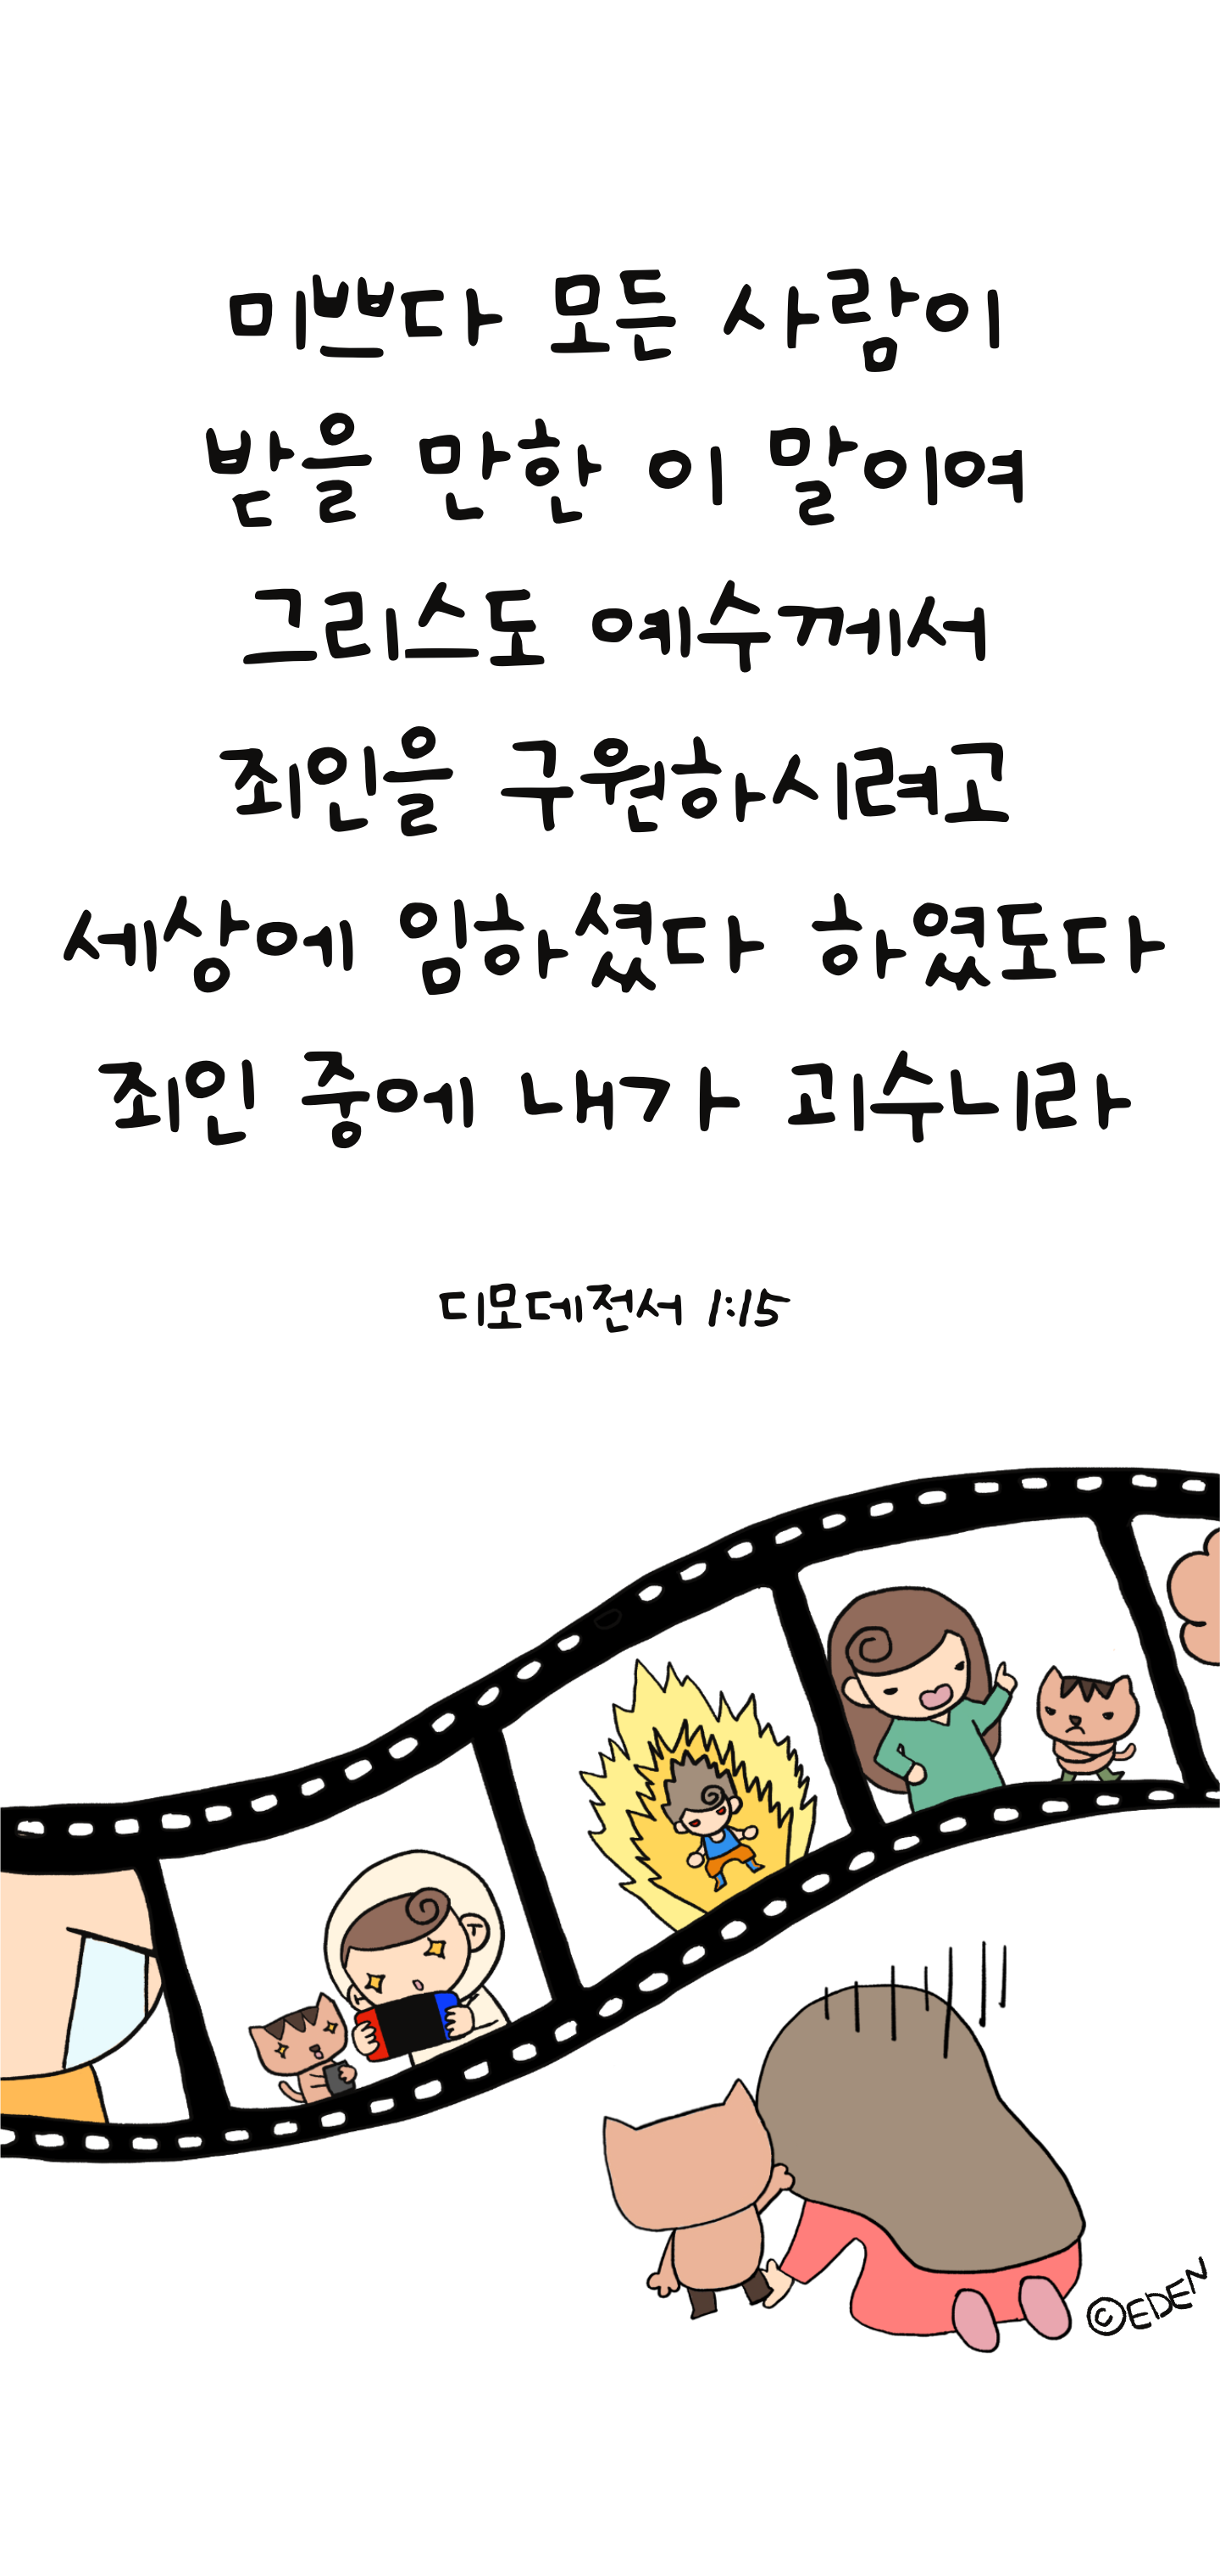 미쁘다 모든 사람이
받을 만한 이 말이여
그리스도 예수께서
죄인을 구원하시려고
세상에 임하셨다 하였도다
죄인 중에 내가 괴수니라
디모데전서 1:15
©EDEN